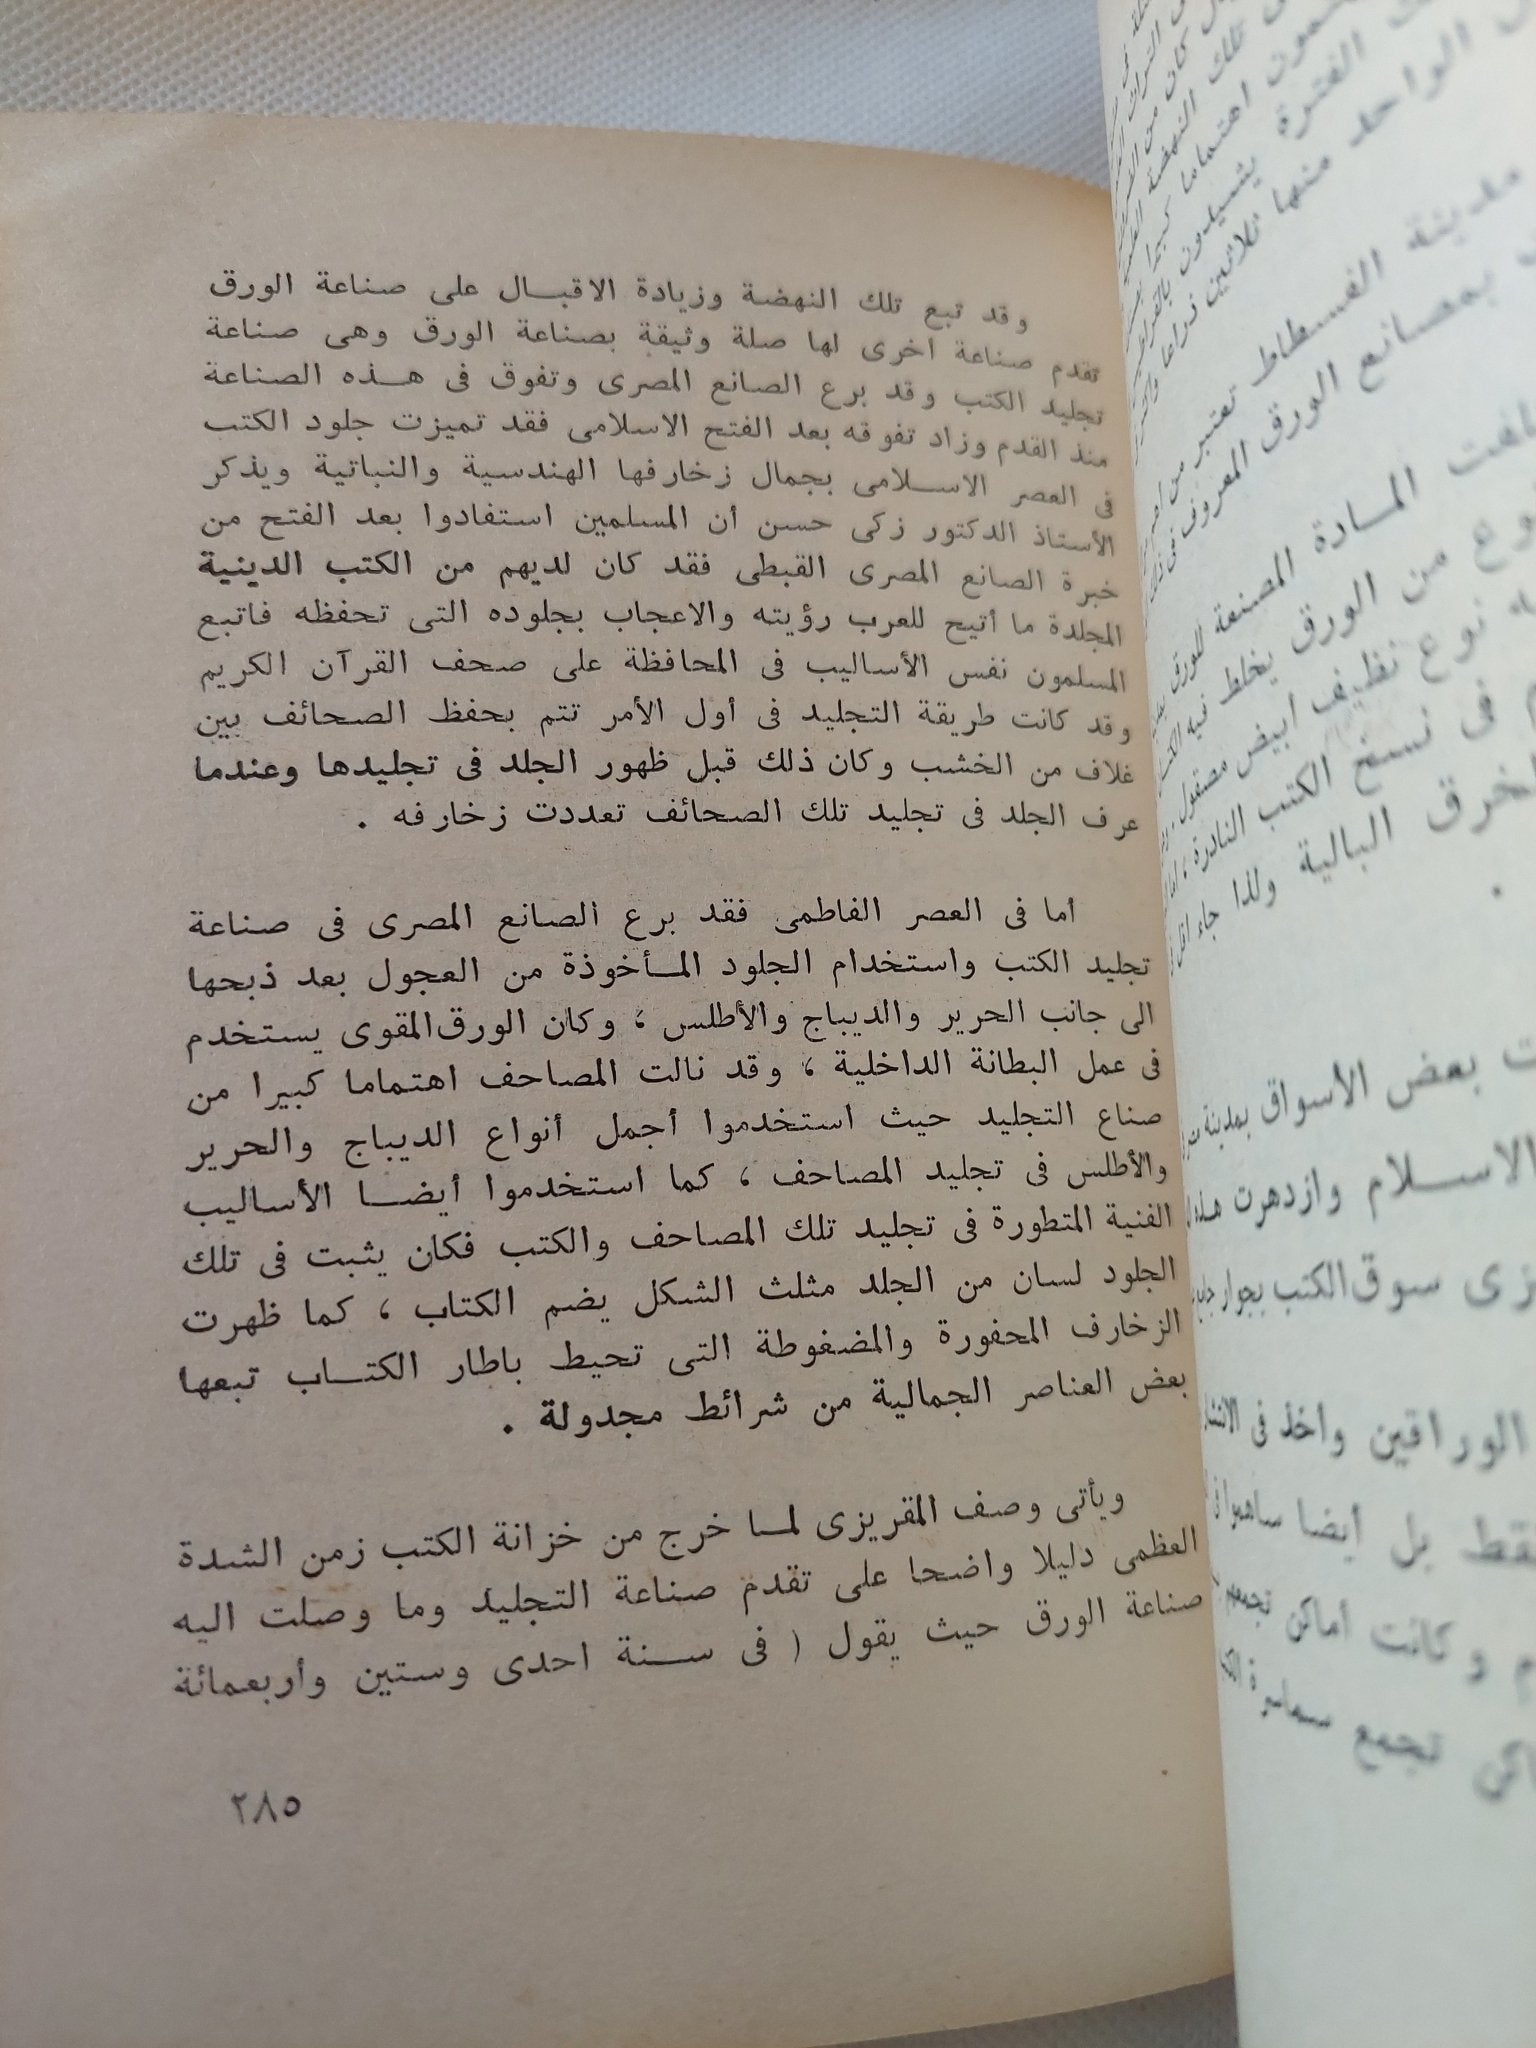 وقد تبع تلك النهضة وزيادة الاقبال على صناعة الورق
تقدم صناعة أخرى لها صلة وثيقة بصناعة الورق وهى صناعة
تجليد الكتب وقد برع الصانع المصرى وتفوق فى هذه الصناعة
منذ القدم وزاد تفوقه بعد الفتح الاسلامى فقد تميزت جلود الكتب
فى العصر الاسلامى بجمال زخارفها الهندسية والنباتية ويذكر
الأستاذ الدكتور زكى حسن أن المسلمين استفادوا بعد الفتح من
خبرة الصانع المصرى القبطى فقد كان لديهم من الكتب الدينية
المجلدة ما أتيح للعرب رؤيته والاعجاب بجلوده التى تحفظه فاتبع
المسلمون نفس الأساليب فى المحافظة على صحف القرآن الكريم
وقد كانت طريقة التجليد فى أول الأمر تتم بحفظ الصحائف بين
غلاف من الخشب وكان ذلك قبل ظهور الجلد فى تجليدها وعندما
عرف الجلد فى تجليد تلك الصحائف تعددت زخارفه .
أما فى العصر الفاطمى فقد برع الصانع المصرى فى صناعة
تجليد الكتب واستخدام الجلود المأخوذة من العجول بعد ذبحها
الى جانب الحرير والديباج والأطلس ، وكان الورق المقوى يستخدم
فى عمل البطانة الداخلية ، وقد نالت المصاحف اهتماما كبيرا من
صناع التجليد حيث استخدموا أجمل أنواع الديباج والحرير
والأطلس فى تجليد المصاحف ، كما استخدموا أيضا الأساليب
الفنية المتطورة فى تجليد تلك المصاحف والكتب فكان يثبت فى تلك
الجلود لسان من الجلد مثلث الشكل يضم الكتاب ، كما ظهرت
الزخارف المحفورة والمضغوطة التى تحيط باطار الكتاب تبعها
بعض العناصر الجمالية من شرائط مجدولة .
ويأتى وصف المقريزى لما خرج من خزانة الكتب زمن الشدة
العظمى دليلا واضحا على تقدم صناعة التجليد وما وصلت اليه
صناعة الورق حيث يقول ( فى سنة احدى وستين وأربعمائة
٢٨٥
تلك النهضة
اهتماما كبيرا
الفترة يشيدون
الواحد منها ثلاثين ذراعا
مدينة الفسطاط تعتبر من
بمصانع الورق المعروف فى
المادة المصنعة للورق
من الورق يخلط فيه
نوع نظيف أبيض مصقول
فى نسخ الكتب النادرة ،
البالية ولذا جاء أقل
.
بعض الأسواق بمدينة
الاسلام وازدهرت هذه
سوق الكتب بجوار
الوراقين وأخذ فى
بل أيضا ساهموا فى
وكانت أماكن
تجمع سماسرة